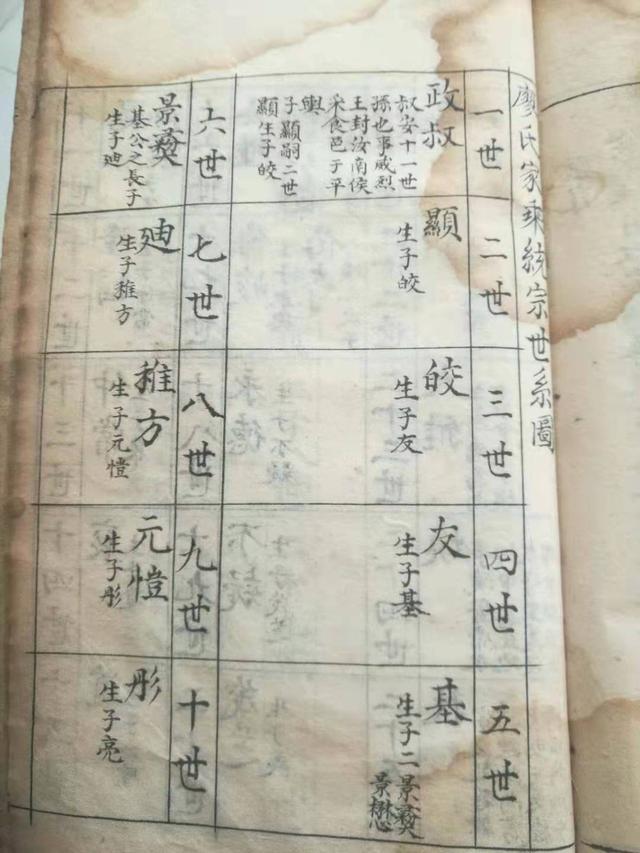 廖氏家乘統宗世系圖
一世
政叔
叔安十一世
孫也事威烈
王封汝南侯
采食邑于平
輿
子顯嗣二世
顯生子皎
二世
顯
生子皎
三世
皎
生子友
四世
友
生子基
五世
基
生子二
景㷼
景懋
六世
景㷼
基公之長子
生子廸
七世
廸
生子稚方
八世
稚方
生子元愷
九世
元愷
生子彤
十世
彤
生子亮